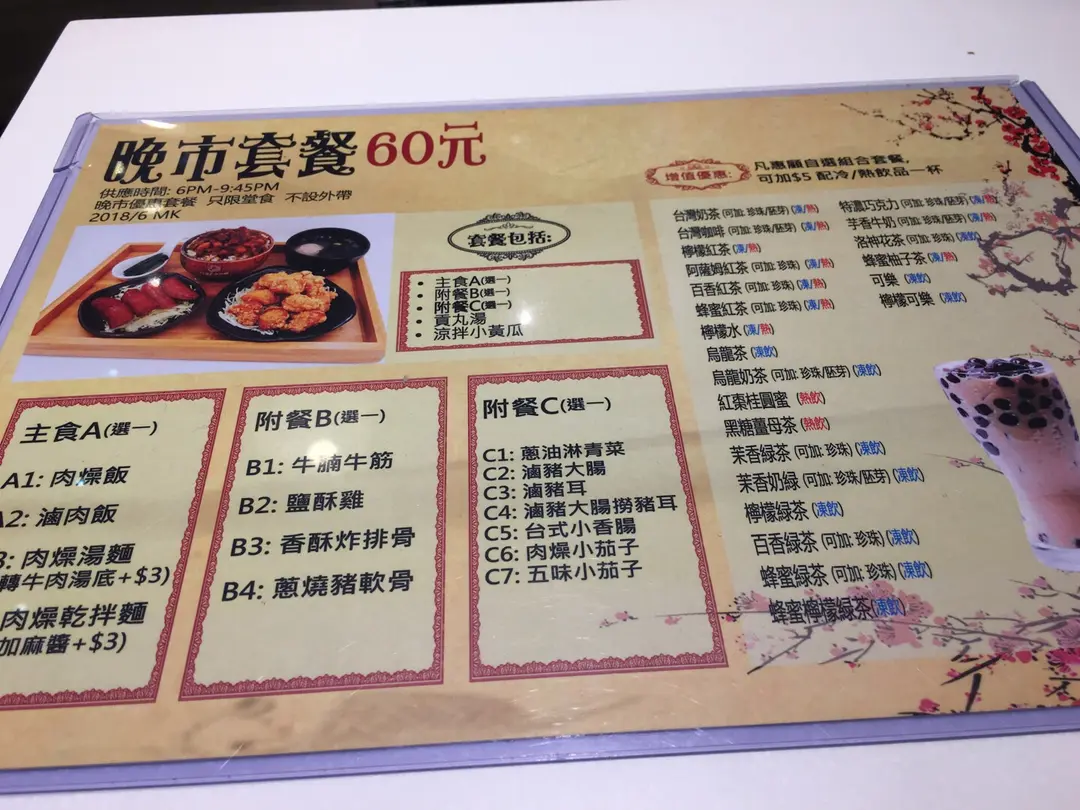 晚市套餐 60元
供應時間: 6PM-9:45PM
晚市優惠套餐 只限堂食 不設外帶
2018/6 MK
套餐包括:
• 主食A(選一)
• 附餐B(選一)
• 附餐C(選一)
• 貢丸湯
• 涼拌小黃瓜
主食A(選一)
A1: 肉燥飯
A2: 滷肉飯
3: 肉燥湯麵
轉牛肉湯底+$3)
肉燥乾拌麵
加麻醬+$3)
附餐B(選一)
B1: 牛腩牛筋
B2: 鹽酥雞
B3: 香酥炸排骨
B4: 蔥燒豬軟骨
附餐C(選一)
C1: 蔥油淋青菜
C2: 滷豬大腸
C3: 滷豬耳
C4: 滷豬大腸撈豬耳
C5: 台式小香腸
C6: 肉燥小茄子
C7: 五味小茄子
增值優惠:
凡惠顧自選組合套餐,
可加$5 配冷/熱飲品一杯
台灣奶茶 (可加: 珍珠/胚芽) (凍/熱)
台灣咖啡 (可加: 珍珠/胚芽) (凍/熱)
檸檬紅茶 (凍/熱)
阿薩姆紅茶 (可加: 珍珠) (凍/熱)
百香紅茶 (可加: 珍珠) (凍/熱)
蜂蜜紅茶 (可加: 珍珠) (凍/熱)
檸檬水 (凍/熱)
烏龍茶 (凍飲)
烏龍奶茶 (可加: 珍珠/胚芽) (凍飲)
紅棗桂圓蜜 (熱飲)
黑糖薑母茶 (熱飲)
茉香綠茶 (可加: 珍珠) (凍飲)
茉香奶綠 (可加: 珍珠/胚芽) (凍飲)
檸檬綠茶 (凍飲)
百香綠茶 (可加: 珍珠) (凍飲)
蜂蜜綠茶 (可加: 珍珠) (凍飲)
蜂蜜檸檬綠茶 (凍飲)
特濃巧克力 (可加: 珍珠/胚芽) (凍/熱)
芋香牛奶 (可加: 珍珠/胚芽) (凍/熱)
洛神花茶 (可加: 珍珠) (凍飲)
蜂蜜柚子茶 (凍/熱)
可樂 (凍飲)
檸檬可樂 (凍飲)